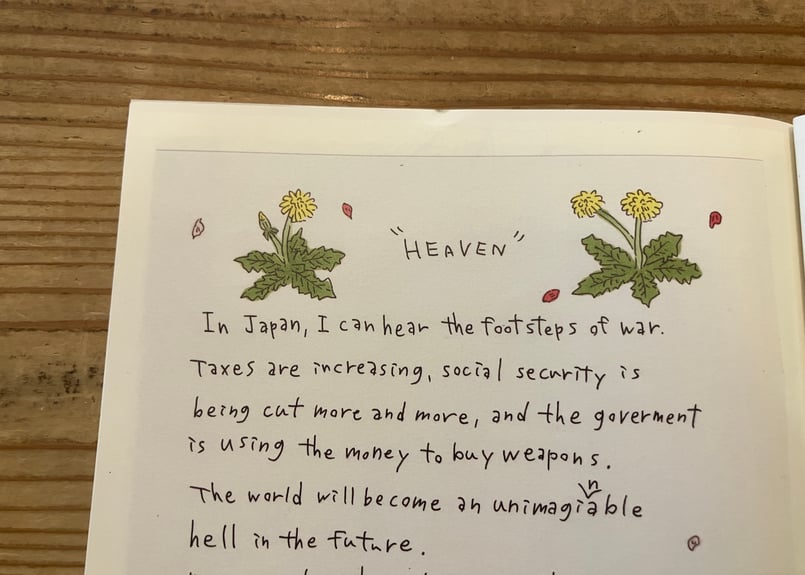 "HEAVEN"
In Japan, I can hear the footsteps of war.
Taxes are increasing, social security is
being cut more and more, and the goverment
is using the money to buy weapons.
The world will become an unimaginable
hell in the future.